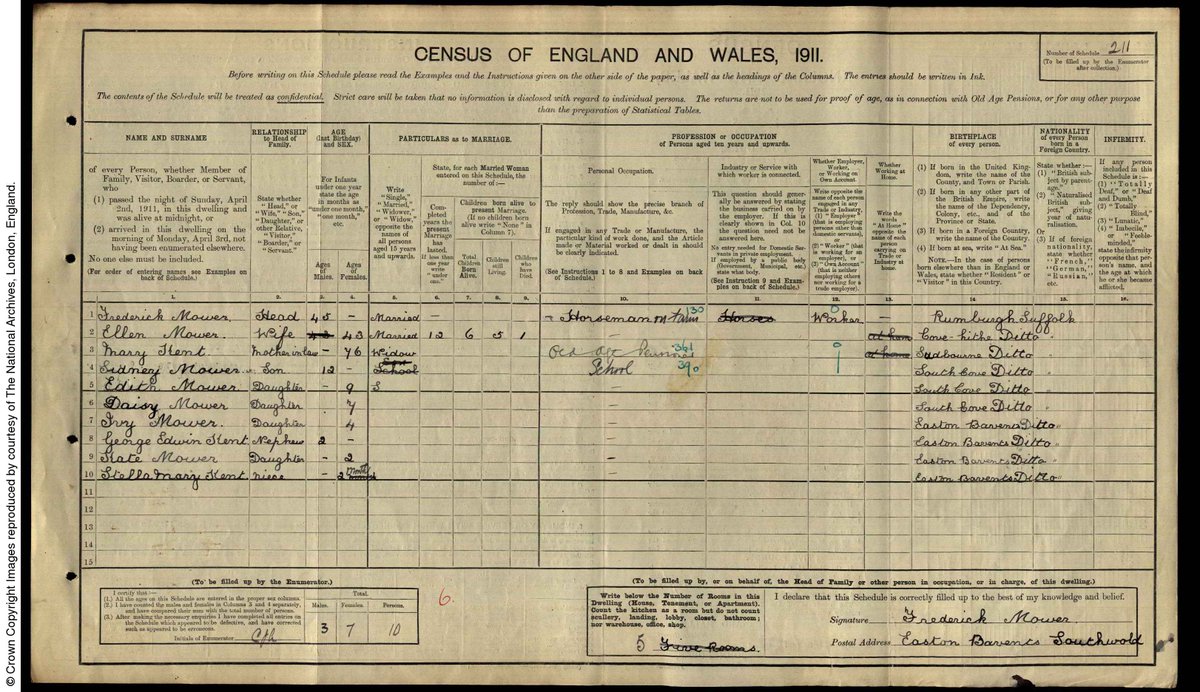 © Crown Copyright Images reproduced by courtesy of The National Archives, London, England.
CENSUS OF ENGLAND AND WALES, 1911.
Number of Schedule 211
(To be filled up by the Enumerator after collection.)
Before writing on this Schedule please read the Examples and the Instructions given on the other side of the paper, as well as the headings of the Columns. The entries should be written in Ink.
The contents of the Schedule will be treated as confidential. Strict care will be taken that no information is disclosed with regard to individual persons. The returns are not to be used for proof of age, as in connection with Old Age Pensions, or for any other purpose
than the preparation of Statistical Tables.
NAME AND SURNAME
of every Person, whether Member of
Family, Visitor, Boarder, or Servant,
who
(1) passed the night of Sunday, April
2nd, 1911, in this dwelling and
was alive at midnight, or
(2) arrived in this dwelling on the
morning of Monday, April 3rd, not
having been enumerated elsewhere.
No one else must be included.
(For order of entering names see Examples on
back of Schedule.)
RELATIONSHIP
to Head of
Family.
State whether
"Head," or
"Wife," "Son,"
"Daughter," or
other Relative,
"Visitor,"
"Boarder," or
"Servant."
AGE
(last Birthday)
and SEX.
For Infants
under one year
state the age
in months as
"under one month,"
"one month,"
etc.
Ages
of
Males.
Ages
of
Females.
PARTICULARS as to MARRIAGE.
Write
"Single,"
"Married,"
"Widower,"
or "Widow,"
opposite the
names of
all persons
aged 15 years
and upwards.
State, for each Married Woman
entered on this Schedule, the
number of :—
Completed
years the
present
Marriage
has
lasted.
If less than
one year
write
"under
one."
Children born alive to
present Marriage.
(If no children born
alive write "None" in
Column 7).
Total
Children
Born
Alive.
Children
still
Living.
Children
who
have
Died.
PROFESSION or OCCUPATION
of Persons aged ten years and upwards.
Personal Occupation.
The reply should show the precise branch of
Profession, Trade, Manufacture, &c.
If engaged in any Trade or Manufacture, the
particular kind of work done, and the Article
made or Material worked or dealt in should
be clearly indicated.
(See Instructions 1 to 8 and Examples on back
of Schedule.)
Industry or Service with
which worker is connected.
This question should gener-
ally be answered by stating
the business carried on by
the employer. If this is
clearly shown in Col. 10
the question need not be
answered here.
No entry needed for Domestic Ser-
vants in private employment.
If employed by a public body
(Government, Municipal, etc.)
state what body.
(See Instruction 9 and Exam-
ples on back of Schedule.)
Whether Employer,
Worker,
or Working on
Own Account.
Write opposite the
name of each person
engaged in any
Trade or Industry,
(1) "Employer"
(that is employing
persons other than
domestic servants),
or
(2) "Worker" (that
is working for an
employer), or
(3) "Own Account"
(that is neither
employing others
nor working for a
trade employer).
Whether
Working at
Home.
Write the
words
"At Home"
opposite the
name of each
person
carrying on
Trade or
Industry at
home.
BIRTHPLACE
of every person.
(1) If born in the United King-
dom, write the name of the
County, and Town or Parish.
(2) If born in any other part of
the British Empire, write
the name of the Dependency,
Colony, etc., and of the
Province or State.
(3) If born in a Foreign Country,
write the name of the Country.
(4) If born at sea, write "At Sea."
NOTE.—In the case of persons
born elsewhere than in England or
Wales, state whether "Resident" or
"Visitor" in this Country.
NATIONALITY
of every Person
born in a
Foreign Country.
State whether :—
(1) "British sub-
ject by parent-
age,"
(2) "Naturalised
British sub-
ject," giving
year of natu-
ralisation.
Or
(3) If of foreign
nationality,
state whether
"French,"
"German,"
"Russian,"
etc.
INFIRMITY.
If any person
included in this
Schedule is :—
(1) "Totally
Deaf," or "Deaf
and Dumb,"
(2) "Totally
Blind,"
(3) "Lunatic,"
(4) "Imbecile,"
or "Feeble-
minded,"
state the infirmity
opposite that per-
son's name, and
the age at which
he or she became
afflicted.
1. 2. 3. 4. 5. 6. 7. 8. 9. 10. 11. 12. 13. 14. 15. 16.
1 Frederick Mower Head 45 - Married - Horseman on Farm 130 Horses Worker 0 Rumburgh Suffolk
2 Ellen Mower. Wife 43 43 Married 12 6 5 1 - at home Cove-hithe Ditto
3 Mary Kent. Mother in law - 76 Widow Old Age Pensioner 361 0 at home Sudbourne Ditto
4 Sidney Mower Son 12 - School School 390 South Cove Ditto
5 Edith Mower Daughter 9 S - South Cove Ditto
6 Daisy Mower Daughter 7 - South Cove Ditto
7 Ivy Mower. Daughter 4 - Easton Bavents Ditto
8 George Edwin Kent Nephew 2 - - Easton Bavents Ditto
9 Kate Mower Daughter - 2 - Easton Bavents Ditto
10 Stella Mary Kent niece - 2 months - Easton Bavents Ditto
11
12
13
14
15
(To be filled up by the Enumerator.)
I certify that :—
(1.) All the ages on this Schedule are entered in the proper sex columns.
(2.) I have counted the males and females in Columns 3 and 4 separately,
and have compared their sum with the total number of persons.
(3.) After making the necessary enquiries I have completed all entries on
the Schedule which appeared to be defective, and have corrected
such as appeared to be erroneous.
Initials of Enumerator
Total.
Males. Females. Persons.
3 7 10
6.
(To be filled up by, or on behalf of, the Head of Family or other person in occupation, or in charge, of this dwelling.)
Write below the Number of Rooms in this
Dwelling (House, Tenement, or Apartment).
Count the kitchen as a room but do not count
scullery, landing, lobby, closet, bathroom;
nor warehouse, office, shop.
5 Five Rooms.
I declare that this Schedule is correctly filled up to the best of my knowledge and belief.
Signature Frederick Mower
Postal Address Easton Bavents Southwold